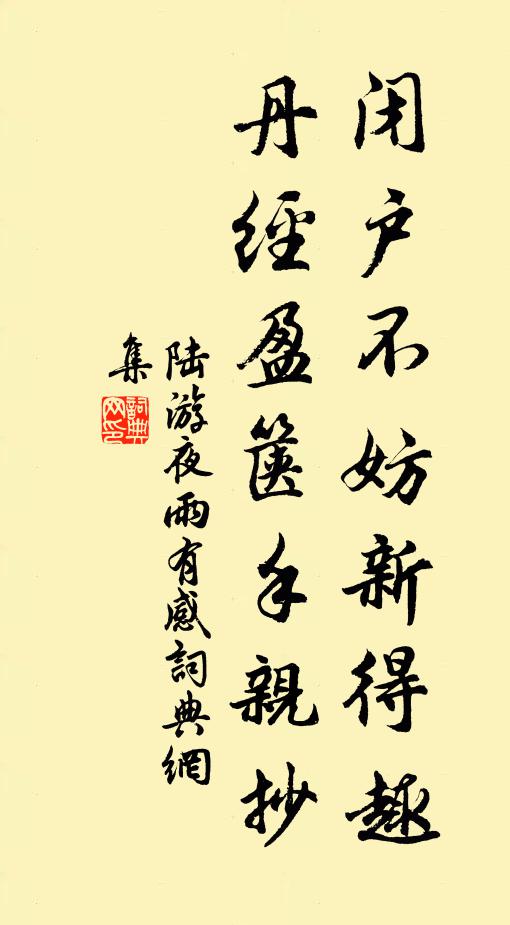 闭户不妨新得趣
丹經盈箧手親抄
陆游夜雨有感詞典網
集
詞典
网印